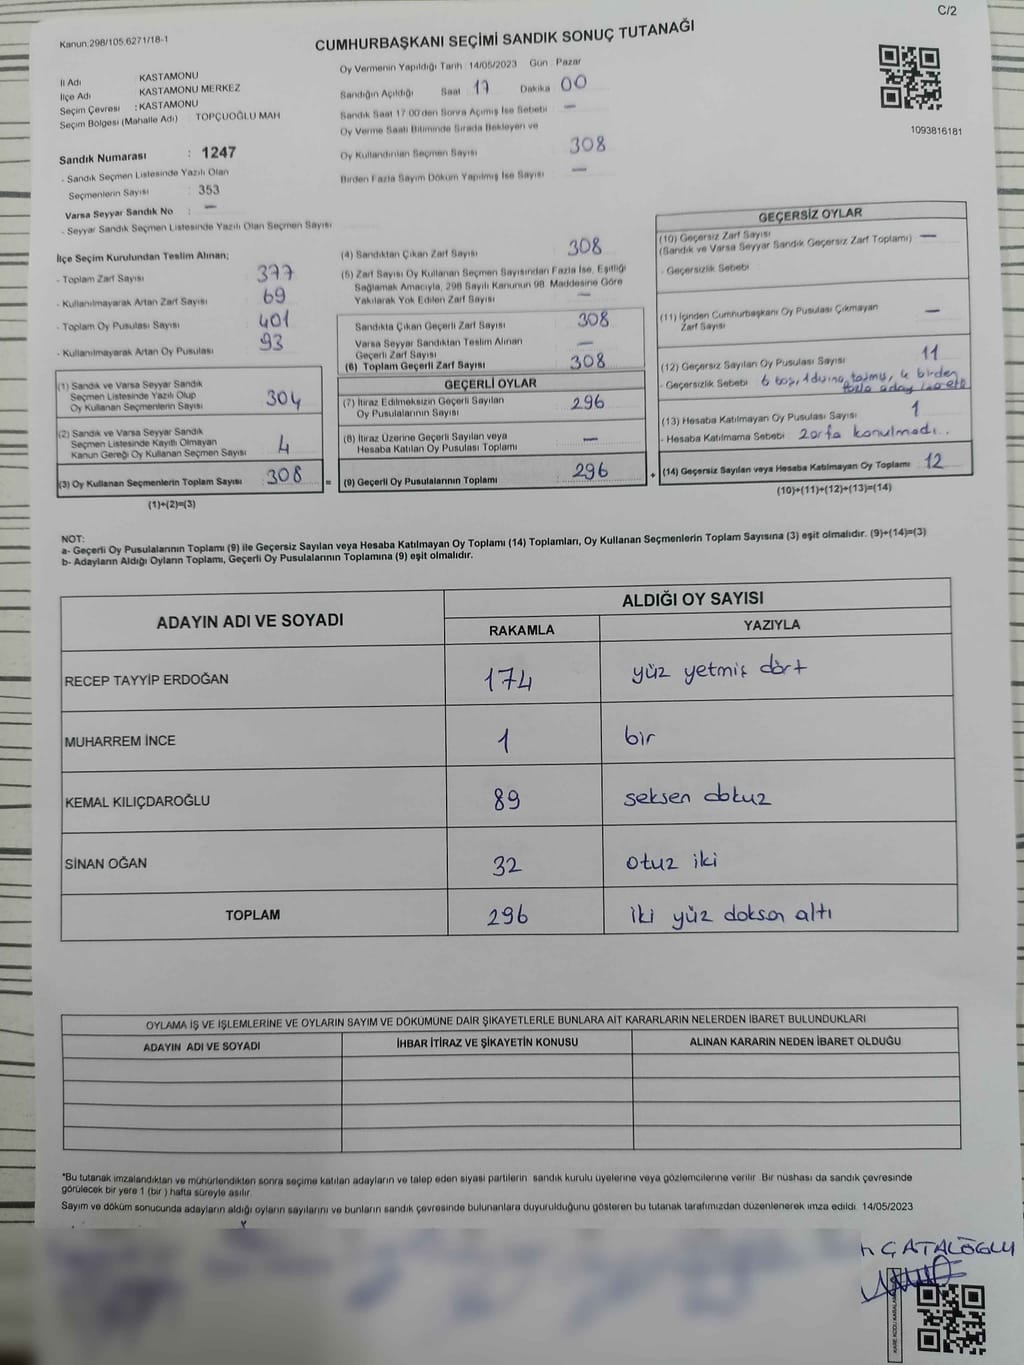 C/2
Kanun,298/105,6271/18-1
CUMHURBAŞKANI SEÇİMİ SANDIK SONUÇ TUTANAĞI
İl Adı : KASTAMONU
İlçe Adı KASTAMONU MERKEZ
Seçim Çevresi : KASTAMONU
Seçim Bölgesi (Mahalle Adı) TOPÇUOĞLU MAH
Sandık Numarası : 1247
- Sandık Seçmen Listesinde Yazılı Olan
Seçmenlerin Sayısı : 353
Varsa Seyyar Sandık No : —
- Seyyar Sandık Seçmen Listesinde Yazılı Olan Seçmen Sayısı :
Oy Vermenin Yapıldığı Tarih : 14/05/2023 Gün : Pazar
Sandığın Açıldığı Saat 17 Dakika 00
Sandık Saat 17:00'den Sonra Açılmış İse Sebebi —
Oy Verme Saati Bitiminde Sırada Bekleyen ve
Oy Kullandırılan Seçmen Sayısı 308
Birden Fazla Sayım Döküm Yapılmış İse Sayısı —
1093816181
İlçe Seçim Kurulundan Teslim Alınan;
- Toplam Zarf Sayısı 377
- Kullanılmayarak Artan Zarf Sayısı 69
- Toplam Oy Pusulası Sayısı 401
- Kullanılmayarak Artan Oy Pusulası 93
(1) Sandık ve Varsa Seyyar Sandık
Seçmen Listesinde Yazılı Olup
Oy Kullanan Seçmenlerin Sayısı 304
(2) Sandık ve Varsa Seyyar Sandık
Seçmen Listesinde Kayıtlı Olmayan
Kanun Gereği Oy Kullanan Seçmen Sayısı 4
(3) Oy Kullanan Seçmenlerin Toplam Sayısı 308
(1)+(2)=(3)
(4) Sandıktan Çıkan Zarf Sayısı 308
(5) Zarf Sayısı Oy Kullanan Seçmen Sayısından Fazla İse, Eşitliği
Sağlamak Amacıyla, 298 Sayılı Kanunun 98. Maddesine Göre
Yakılarak Yok Edilen Zarf Sayısı —
Sandıkta Çıkan Geçerli Zarf Sayısı 308
Varsa Seyyar Sandıktan Teslim Alınan —
Geçerli Zarf Sayısı
(6) Toplam Geçerli Zarf Sayısı 308
GEÇERLİ OYLAR
(7) İtiraz Edilmeksizin Geçerli Sayılan
Oy Pusulalarının Sayısı 296
(8) İtiraz Üzerine Geçerli Sayılan veya
Hesaba Katılan Oy Pusulası Toplamı —
= (9) Geçerli Oy Pusulalarının Toplamı 296
GEÇERSİZ OYLAR
(10) Geçersiz Zarf Sayısı
(Sandık ve Varsa Seyyar Sandık Geçersiz Zarf Toplamı) —
- Geçersizlik Sebebi
(11) İçinden Cumhurbaşkanı Oy Pusulası Çıkmayan
Zarf Sayısı —
(12) Geçersiz Sayılan Oy Pusulası Sayısı 11
- Geçersizlik Sebebi 6 boş, 1 taşmış, 4 birden
fazla aday
(13) Hesaba Katılmayan Oy Pusulası Sayısı 1
- Hesaba Katılmama Sebebi : zarfa konulmadı..
+ (14) Geçersiz Sayılan veya Hesaba Katılmayan Oy Toplamı 12
(10)+(11)+(12)+(13)=(14)
NOT:
a- Geçerli Oy Pusulalarının Toplamı (9) ile Geçersiz Sayılan veya Hesaba Katılmayan Oy Toplamı (14) Toplamları, Oy Kullanan Seçmenlerin Toplam Sayısına (3) eşit olmalıdır. (9)+(14)=(3)
b- Adayların Aldığı Oyların Toplamı, Geçerli Oy Pusulalarının Toplamına (9) eşit olmalıdır.
ADAYIN ADI VE SOYADI
ALDIĞI OY SAYISI
RAKAMLA YAZIYLA
RECEP TAYYİP ERDOĞAN 174 yüz yetmiş dört
MUHARREM İNCE 1 bir
KEMAL KILIÇDAROĞLU 89 seksen dokuz
SİNAN OĞAN 32 otuz iki
TOPLAM 296 iki yüz doksan altı
OYLAMA İŞ VE İŞLEMLERİNE VE OYLARIN SAYIM VE DÖKÜMÜNE DAİR ŞİKAYETLERLE BUNLARA AİT KARARLARIN NELERDEN İBARET BULUNDUKLARI
ADAYIN ADI VE SOYADI İHBAR İTİRAZ VE ŞİKAYETİN KONUSU ALINAN KARARIN NEDEN İBARET OLDUĞU
*Bu tutanak imzalandıktan ve mühürlendikten sonra seçime katılan adayların ve talep eden siyasi partilerin sandık kurulu üyelerine veya gözlemcilerine verilir. Bir nüshası da sandık çevresinde
görülecek bir yere 1 (bir ) hafta süreyle asılır.
Sayım ve döküm sonucunda adayların aldığı oyların sayılarını ve bunların sandık çevresinde bulunanlara duyurulduğunu gösteren bu tutanak tarafımızdan düzenlenerek imza edildi. 14/05/2023
ÇATALOĞLU